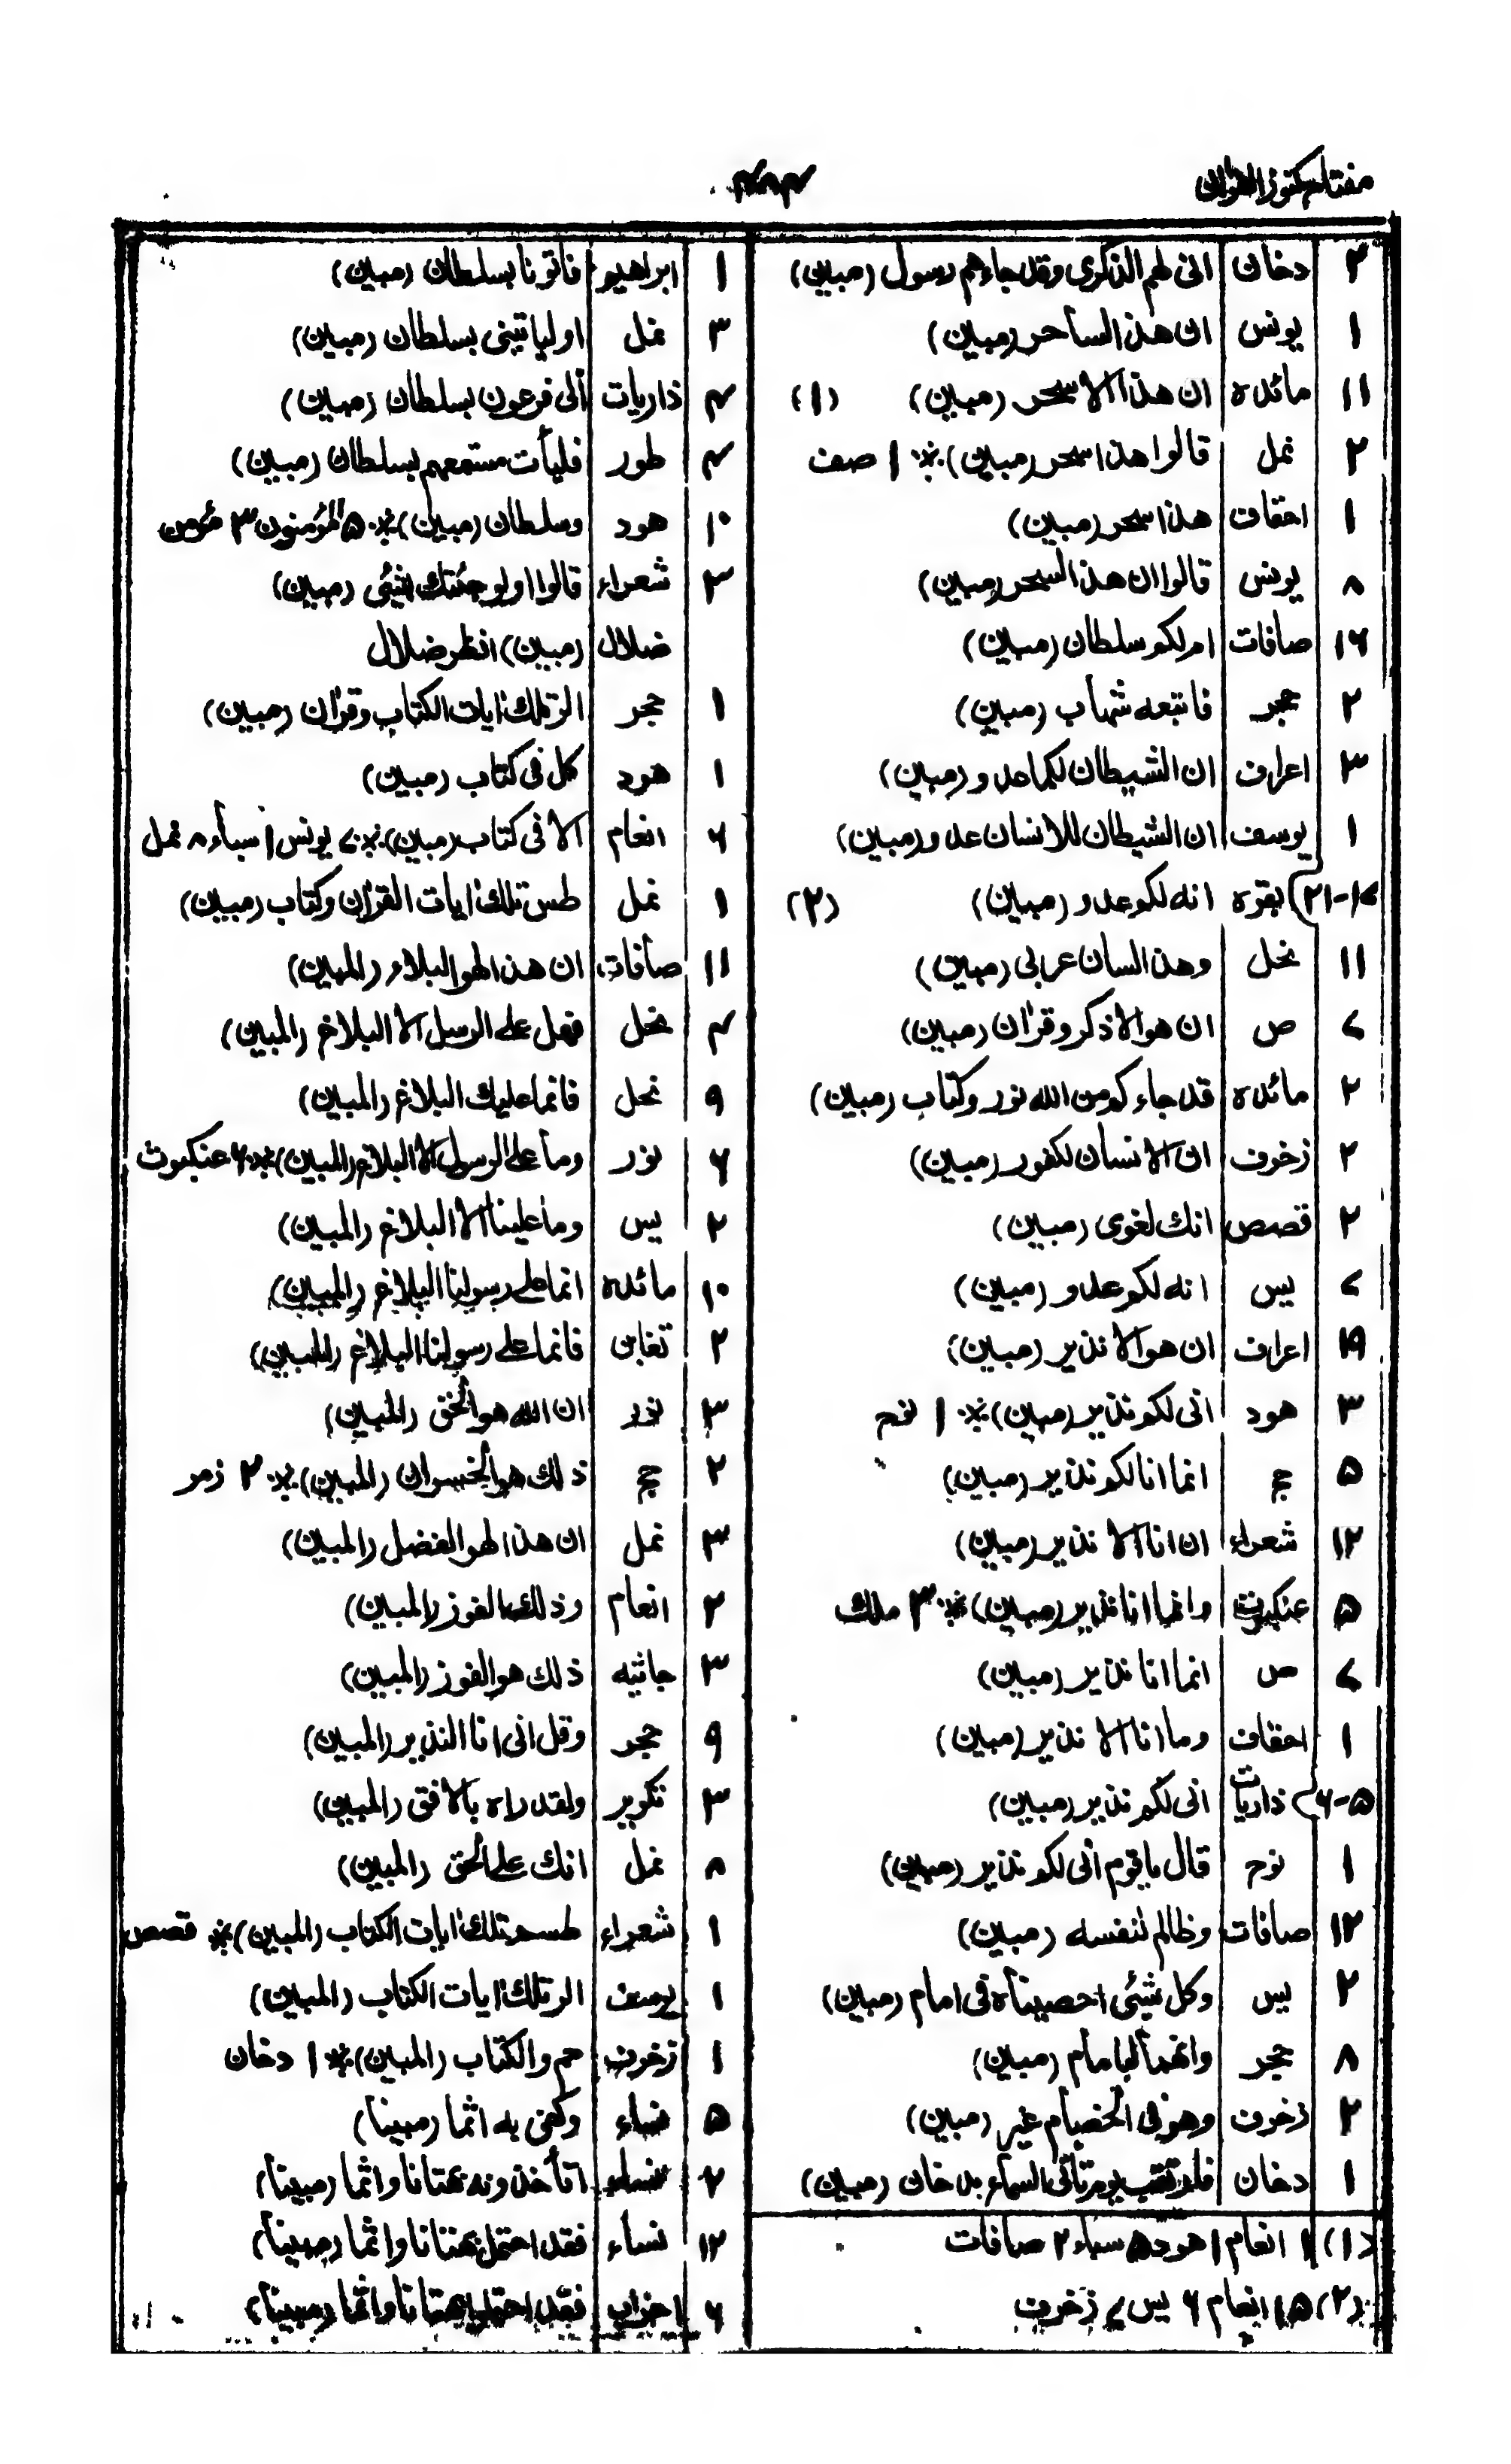 مفتاح كنوز القران
٤٨٤
٢ دخان انى لهم الذكرى وقد جاءهم رسول (مبين)
١ يونس ان هذا لساحر (مبين)
١١ مائده ان هذا الا سحر (مبين) (١)
٢ نمل قالوا هذا سحر (مبين) ※ ١ صف
١ احقاف هذا سحر (مبين)
٨ يونس قالوا ان هذا لسحر (مبين)
١٦ صافات ام لكم سلطان (مبين)
٢ حجر فاتبعه شهاب (مبين)
٣ اعراف ان الشيطان لكما عدو (مبين)
١ يوسف ان الشيطان للانسان عدو (مبين)
١٧-٢١ بقره انه لكم عدو (مبين) (٢)
١١ نحل وهذا لسان عربى (مبين)
٧ ص ان هو الا ذكر وقران (مبين)
٢ مائده قد جاءكم من الله نور وكتاب (مبين)
٢ زخرف ان الانسان لكفور (مبين)
٢ قصص انك لغوى (مبين)
٧ يس انه لكم عدو (مبين)
١٩ اعراف ان هو الا نذير (مبين)
٣ هود انى لكم نذير (مبين) ※ ١ نوح
٥ حج انما انا لكم نذير (مبين)
١٢ شعراء ان انا الا نذير (مبين)
٥ عنكبوت وانما انا نذير (مبين) ※ ٣ ملك
٧ ص انما انا نذير (مبين)
١ احقاف وما انا الا نذير (مبين)
٥-٦ ذاريات انى لكم نذير (مبين)
١ نوح قال ياقوم انى لكم نذير (مبين)
١٢ صافات وظالم لنفسه (مبين)
٢ يس وكل شيئى احصيناه فى امام (مبين)
٨ حجر وانهما لبامام (مبين)
٢ زخرف وهو فى الخصام غير (مبين)
١ دخان فارتقب يوم تاتى السماء بدخان (مبين)
(١) ١ انعام ١ هود ٥ سباء ٢ صافات
(٢) ١٥ انعام ٦ يس ٧ زخرف
١ ابراهيم فاتونا بسلطان (مبين)
٣ نمل اوليا تينى بسلطان (مبين)
٤ ذاريات الى فرعون بسلطان (مبين)
٤ طور فليأت مستمعهم بسلطان (مبين)
١٠ هود وسلطان (مبين) ※ ٥ المؤمنون ٣ مؤمن
٣ شعراء قالوا اولو جئتك بشيئى (مبين)
ضلال (مبين) انظر ضلال
١ حجر الر تلك ايات الكتاب وقران (مبين)
١ هود كل فى كتاب (مبين)
٦ انعام الا فى كتاب (مبين) ※ ٧ يونس ١ سباء ٨ نمل
١ نمل طس تلك ايات القران وكتاب (مبين)
١١ صافات ان هذا لهو البلاء (المبين)
٤ نحل فهل على الرسل الا البلاغ (المبين)
٩ نحل فانما عليك البلاغ (المبين)
٦ نور وما على الرسول الا البلاغ (المبين) ※ ٢ عنكبوت
٢ يس وما علينا الا البلاغ (المبين)
١٠ مائده انما على رسولنا البلاغ (المبين)
٢ تغابن فانما على رسولنا البلاغ (المبين)
٣ نور ان الله هو الحق (المبين)
٢ حج ذلك هو الخسران (المبين) ※ ٢ زمر
٣ نمل ان هذا لهو الفضل (المبين)
٢ انعام وذلك الفوز (المبين)
٣ جاثيه ذلك هو الفوز (المبين)
٩ حجر وقل انى انا النذير (المبين)
٣ تكوير ولقد راه بالافق (المبين)
٨ نمل انك على الحق (المبين)
١ شعراء طسم تلك ايات الكتاب (المبين) ※ قصص
١ يوسف الر تلك ايات الكتاب (المبين)
١ زخرف حم والكتاب (المبين) ※ ١ دخان
٥ نساء وكفى به اثما (مبينا)
٢ نساء اتأخذونه بهتانا واثما (مبينا)
١٢ نساء فقد احتمل بهتانا واثما (مبينا)
٦ احزاب فقد احتملوا بهتانا واثما (مبينا)